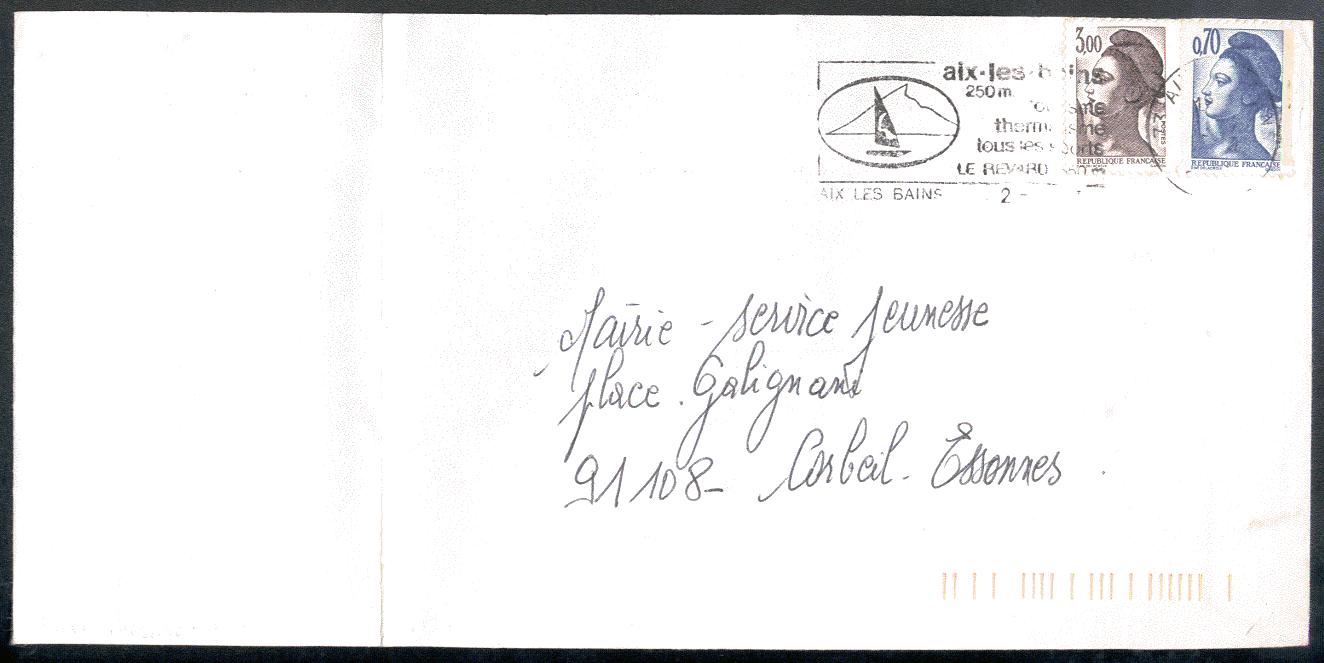 aix-les-bains
250m.
tourisme
thermalisme
tous les sports
LE REVARD
AIX LES BAINS
2 -
3,00
REPUBLIQUE FRANÇAISE
0,70
REPUBLIQUE FRANÇAISE
73
Mairie - service jeunesse
place Galignani
91108 - Corbeil - Essonnes